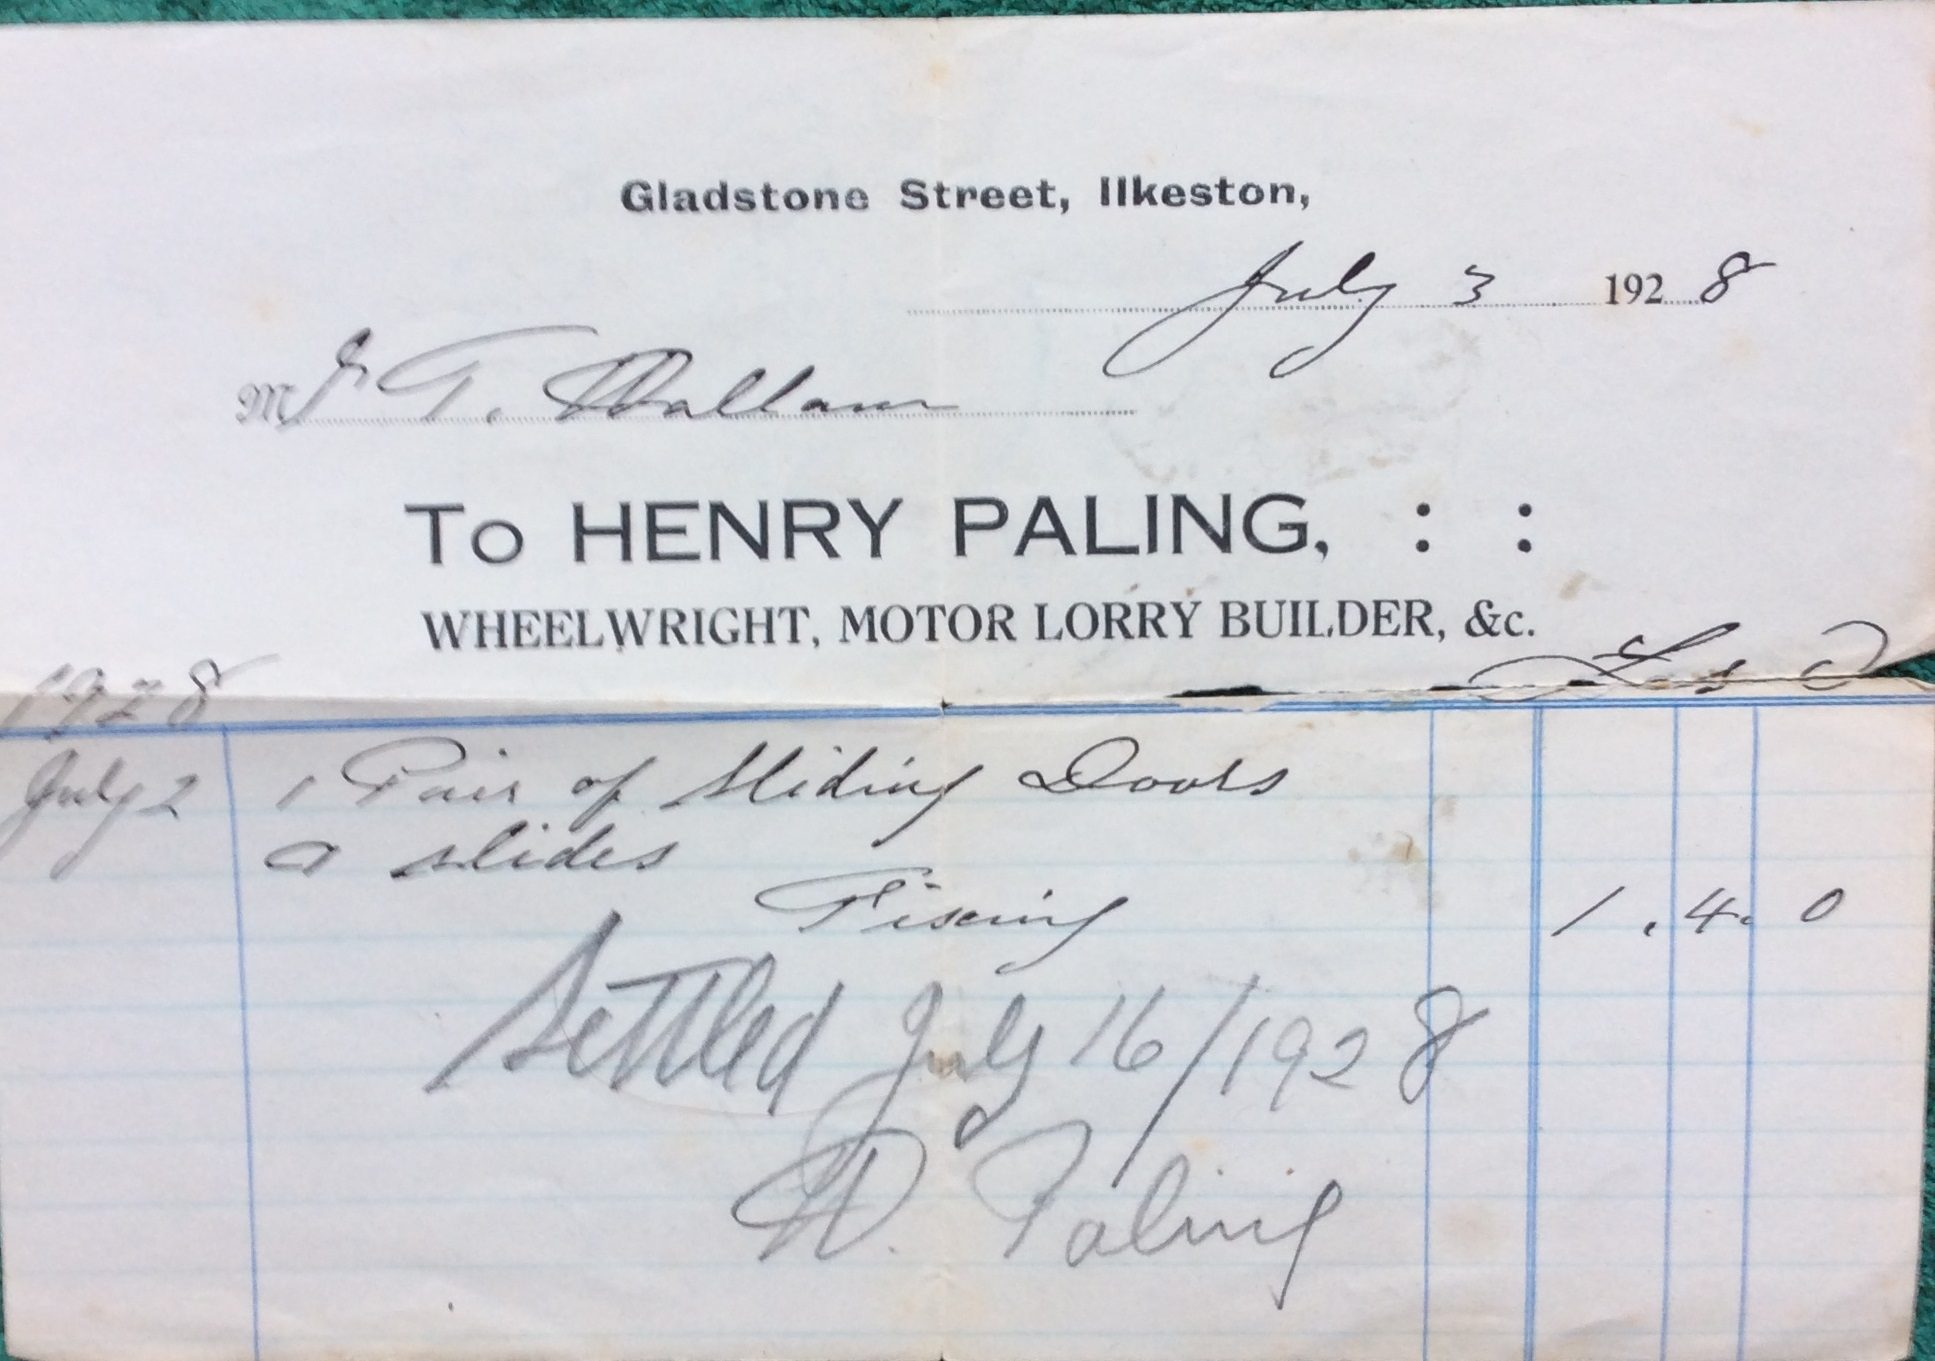 Gladstone Street, Ilkeston,
July 3 1928
Mr T. Hallam
To HENRY PALING, : :
WHEELWRIGHT, MOTOR LORRY BUILDER, &c.
1928 £ s D
July 2 1 Pair of Sliding Doors
& slides
Fixing 1. 4. 0
Settled July 16/1928
H. Paling